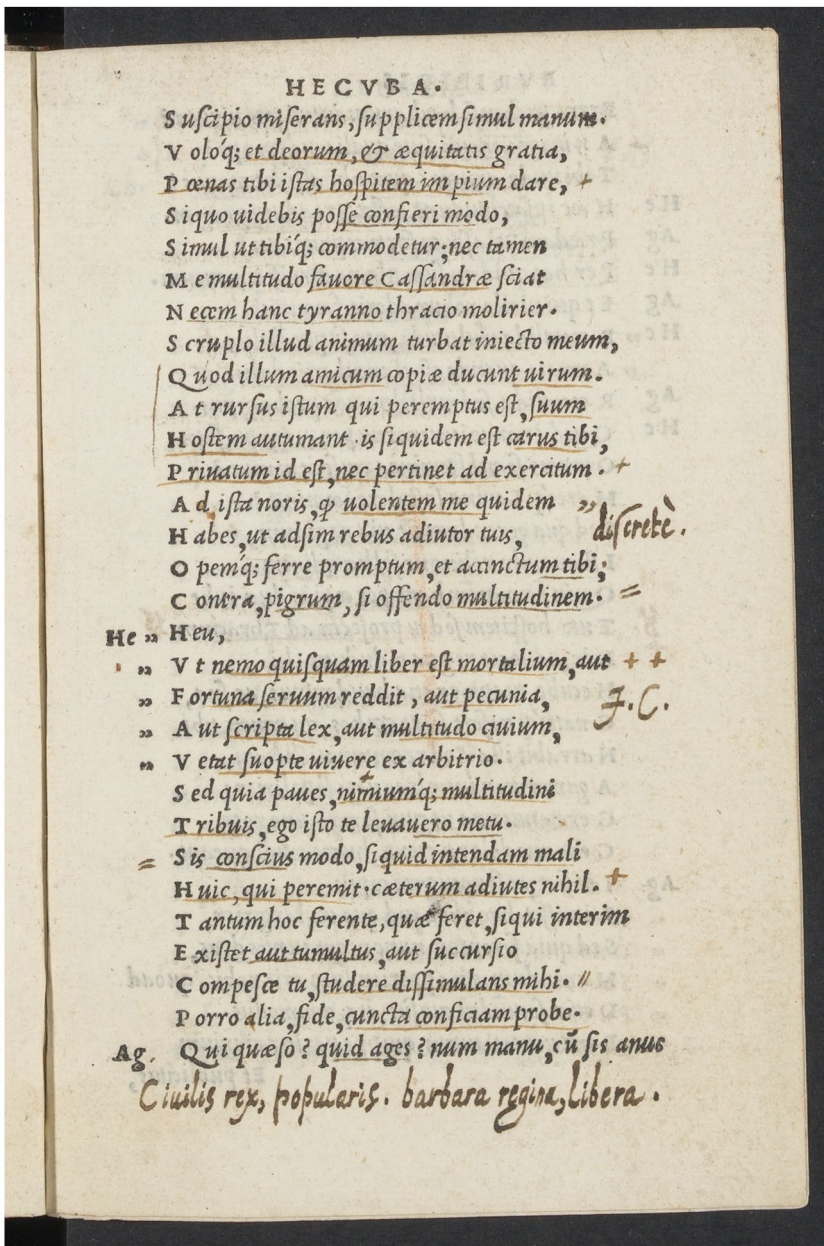 HECVBA.
Suscipio miserans, supplicem simul manum.
Voloq́; et deorum, & æquitatis gratia,
Pœnas tibi istas hospitem impium dare, +
Siquo uidebis posse confieri modo,
Simul ut tibiq́; commodetur; nec tamen
Me multitudo fauore Cassandræ sciat
Necem hanc tyranno thracio molirier.
Scruplo illud animum turbat iniecto meum,
Quod illum amicum copiæ ducunt uirum.
At rursus istum qui peremptus est, suum
Hostem autumant. is siquidem est carus tibi,
Priuatum id est, nec pertinet ad exercitum. +
Ad ista noris, ꝙ uolentem me quidem „
discretè.
Habes, ut adsim rebus adiutor tuis,
Opemq́; ferre promptum, et accinctum tibi;
Contra, pigrum, si offendo multitudinem. =
He „ Heu,
„ Vt nemo quisquam liber est mortalium, aut + +
„ Fortuna seruum reddit, aut pecunia,
J. C.
„ Aut scripta lex, aut multitudo ciuium,
„ Vetat suopte uiuere ex arbitrio.
Sed quia paues, nimiumq́; multitudini
Tribuis, ego isto te leuauero metu.
= Sis conscius modo, siquid intendam mali
Huic, qui peremit. cæterum adiutes nihil. +
Tantum hoc ferente, quæ feret, siqui interim
Existet aut tumultus, aut succursio
Compesce tu, studere dissimulans mihi. //
Porro alia, fide, cuncta conficiam probe.
Ag. Qui quæso? quid ages? num manu, cū sis anus
Ciuilis rex, popularis. barbara regina, libera.